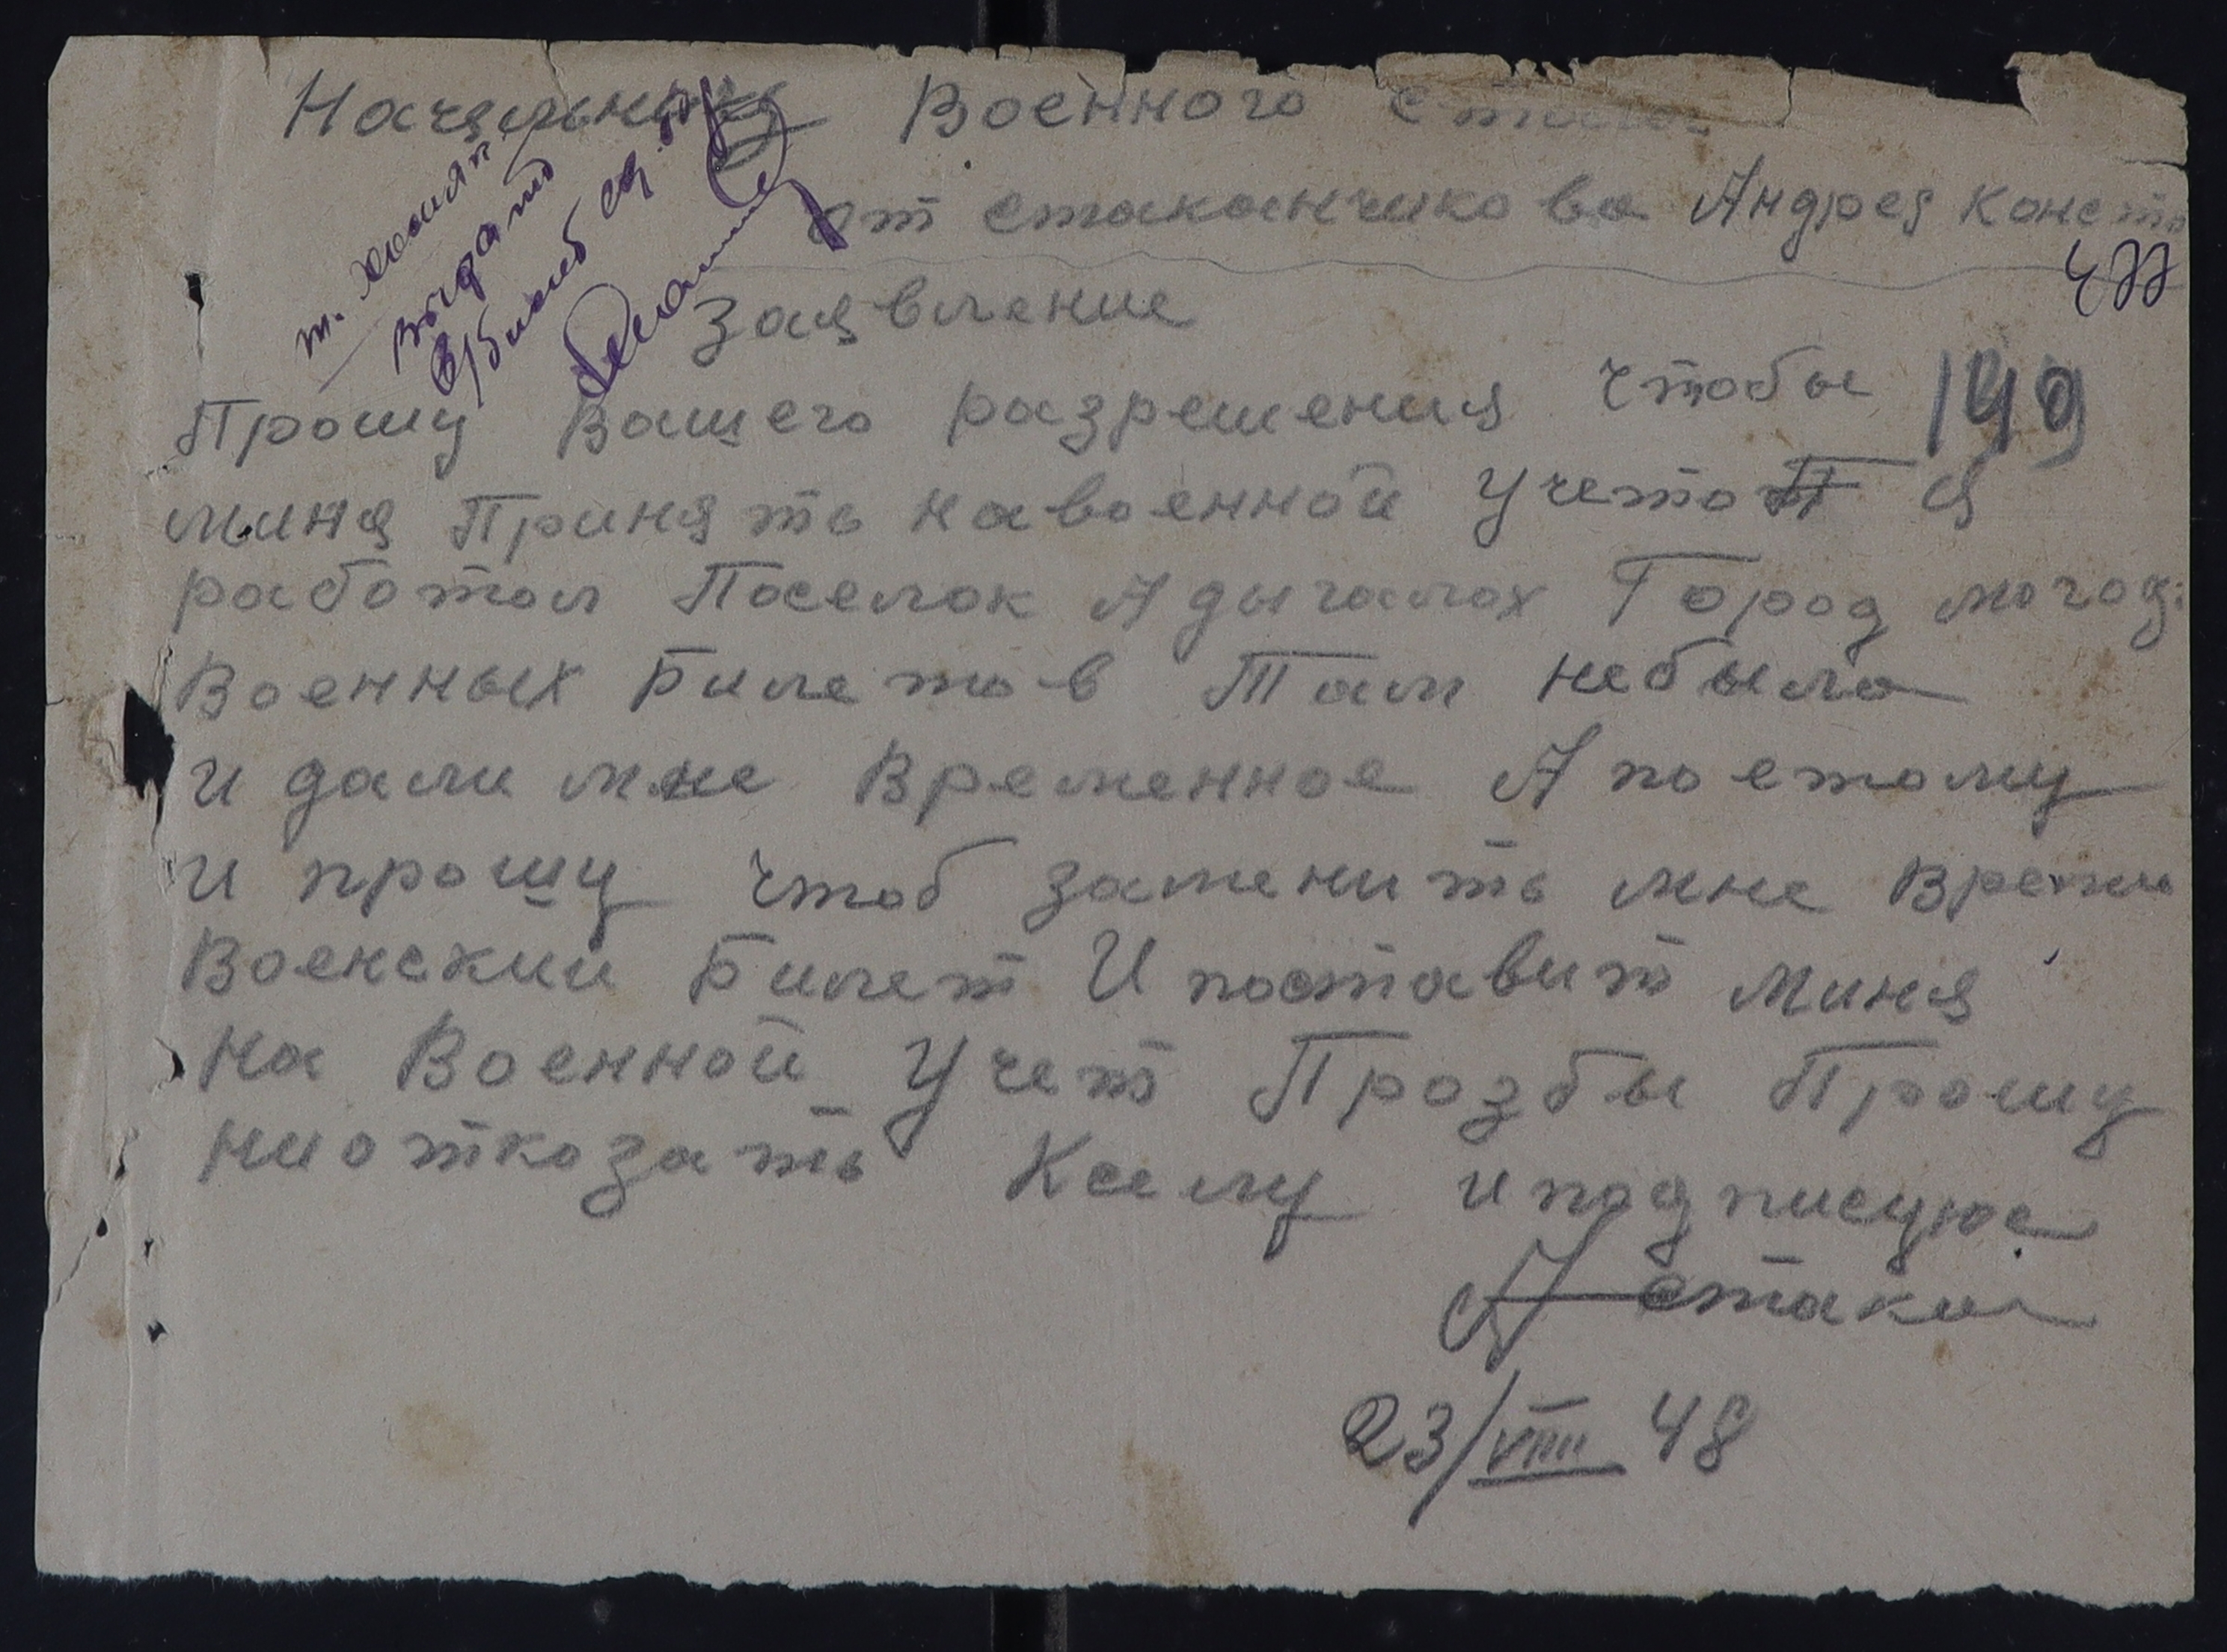 Начальнику Военного
от стаканчикова Андрея Конст
477
Заявление
выдать
в/билет
Прошу Вашего разрешения чтобы 149
миня Принять на военной Учет я
работал Поселок Адыгалах Город магад
Военных Билетов Там небыло
и дали мне Временное А поетому
и прошу чтоб заменить мне Времен
Военский Билет И поставит миня
на Военной Учет Прозбы Прошу
ниотказать Ксему и подписуюс
А стакан
23/VIII 48